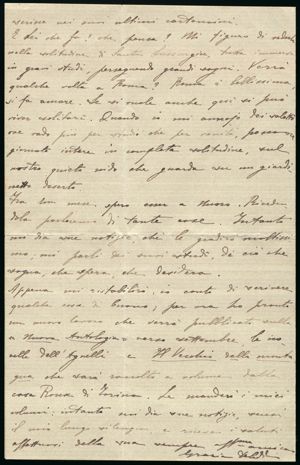 scrivere nei suoi ultimi cartoncini.
E Lei che fa? che pensa? Mi figuro di vederla
nella solitudine di Santu Lussurgiu, tutta immersa
in gravi studi, perseguendo grandi sogni. Verrà
qualche volta a Roma? Roma è bellissima
si fa amare. Se si vuole anche qui si può
viver solitari. Quando io mi annojo dei salotti
ove vado più per studio che per vanità, passo
giornate intere in completa solitudine, nel
nostro quieto nido che guarda su un giardi-
netto deserto.
Fra un mese, spero, sarò a Nuoro. Riveden-
dola parleremo di tante cose. Intanto
mi dia sue notizie, che le gradirò moltissi-
mo; mi parli dei suoi studi, di ciò che
sogna, che spera, che desidera.
Appena mi ristabilirò, io conto di scrivere
qualche cosa di buono; per ora ho pronto
un nuovo lavoro che verrà pubblicato sulla
Nuova Antologia verso settembre. Le no-
velle dell'Agnelli e Il Vecchio della monta-
gna che sarà raccolto in volume dalla
casa Roux di Torino. Le manderò i miei
volumi; intanto mi dia sue notizie, scusi
il mio lungo silenzio, e riceva i saluti
affettuosi della sua sempre aff.ma amica
Grazia Deledda